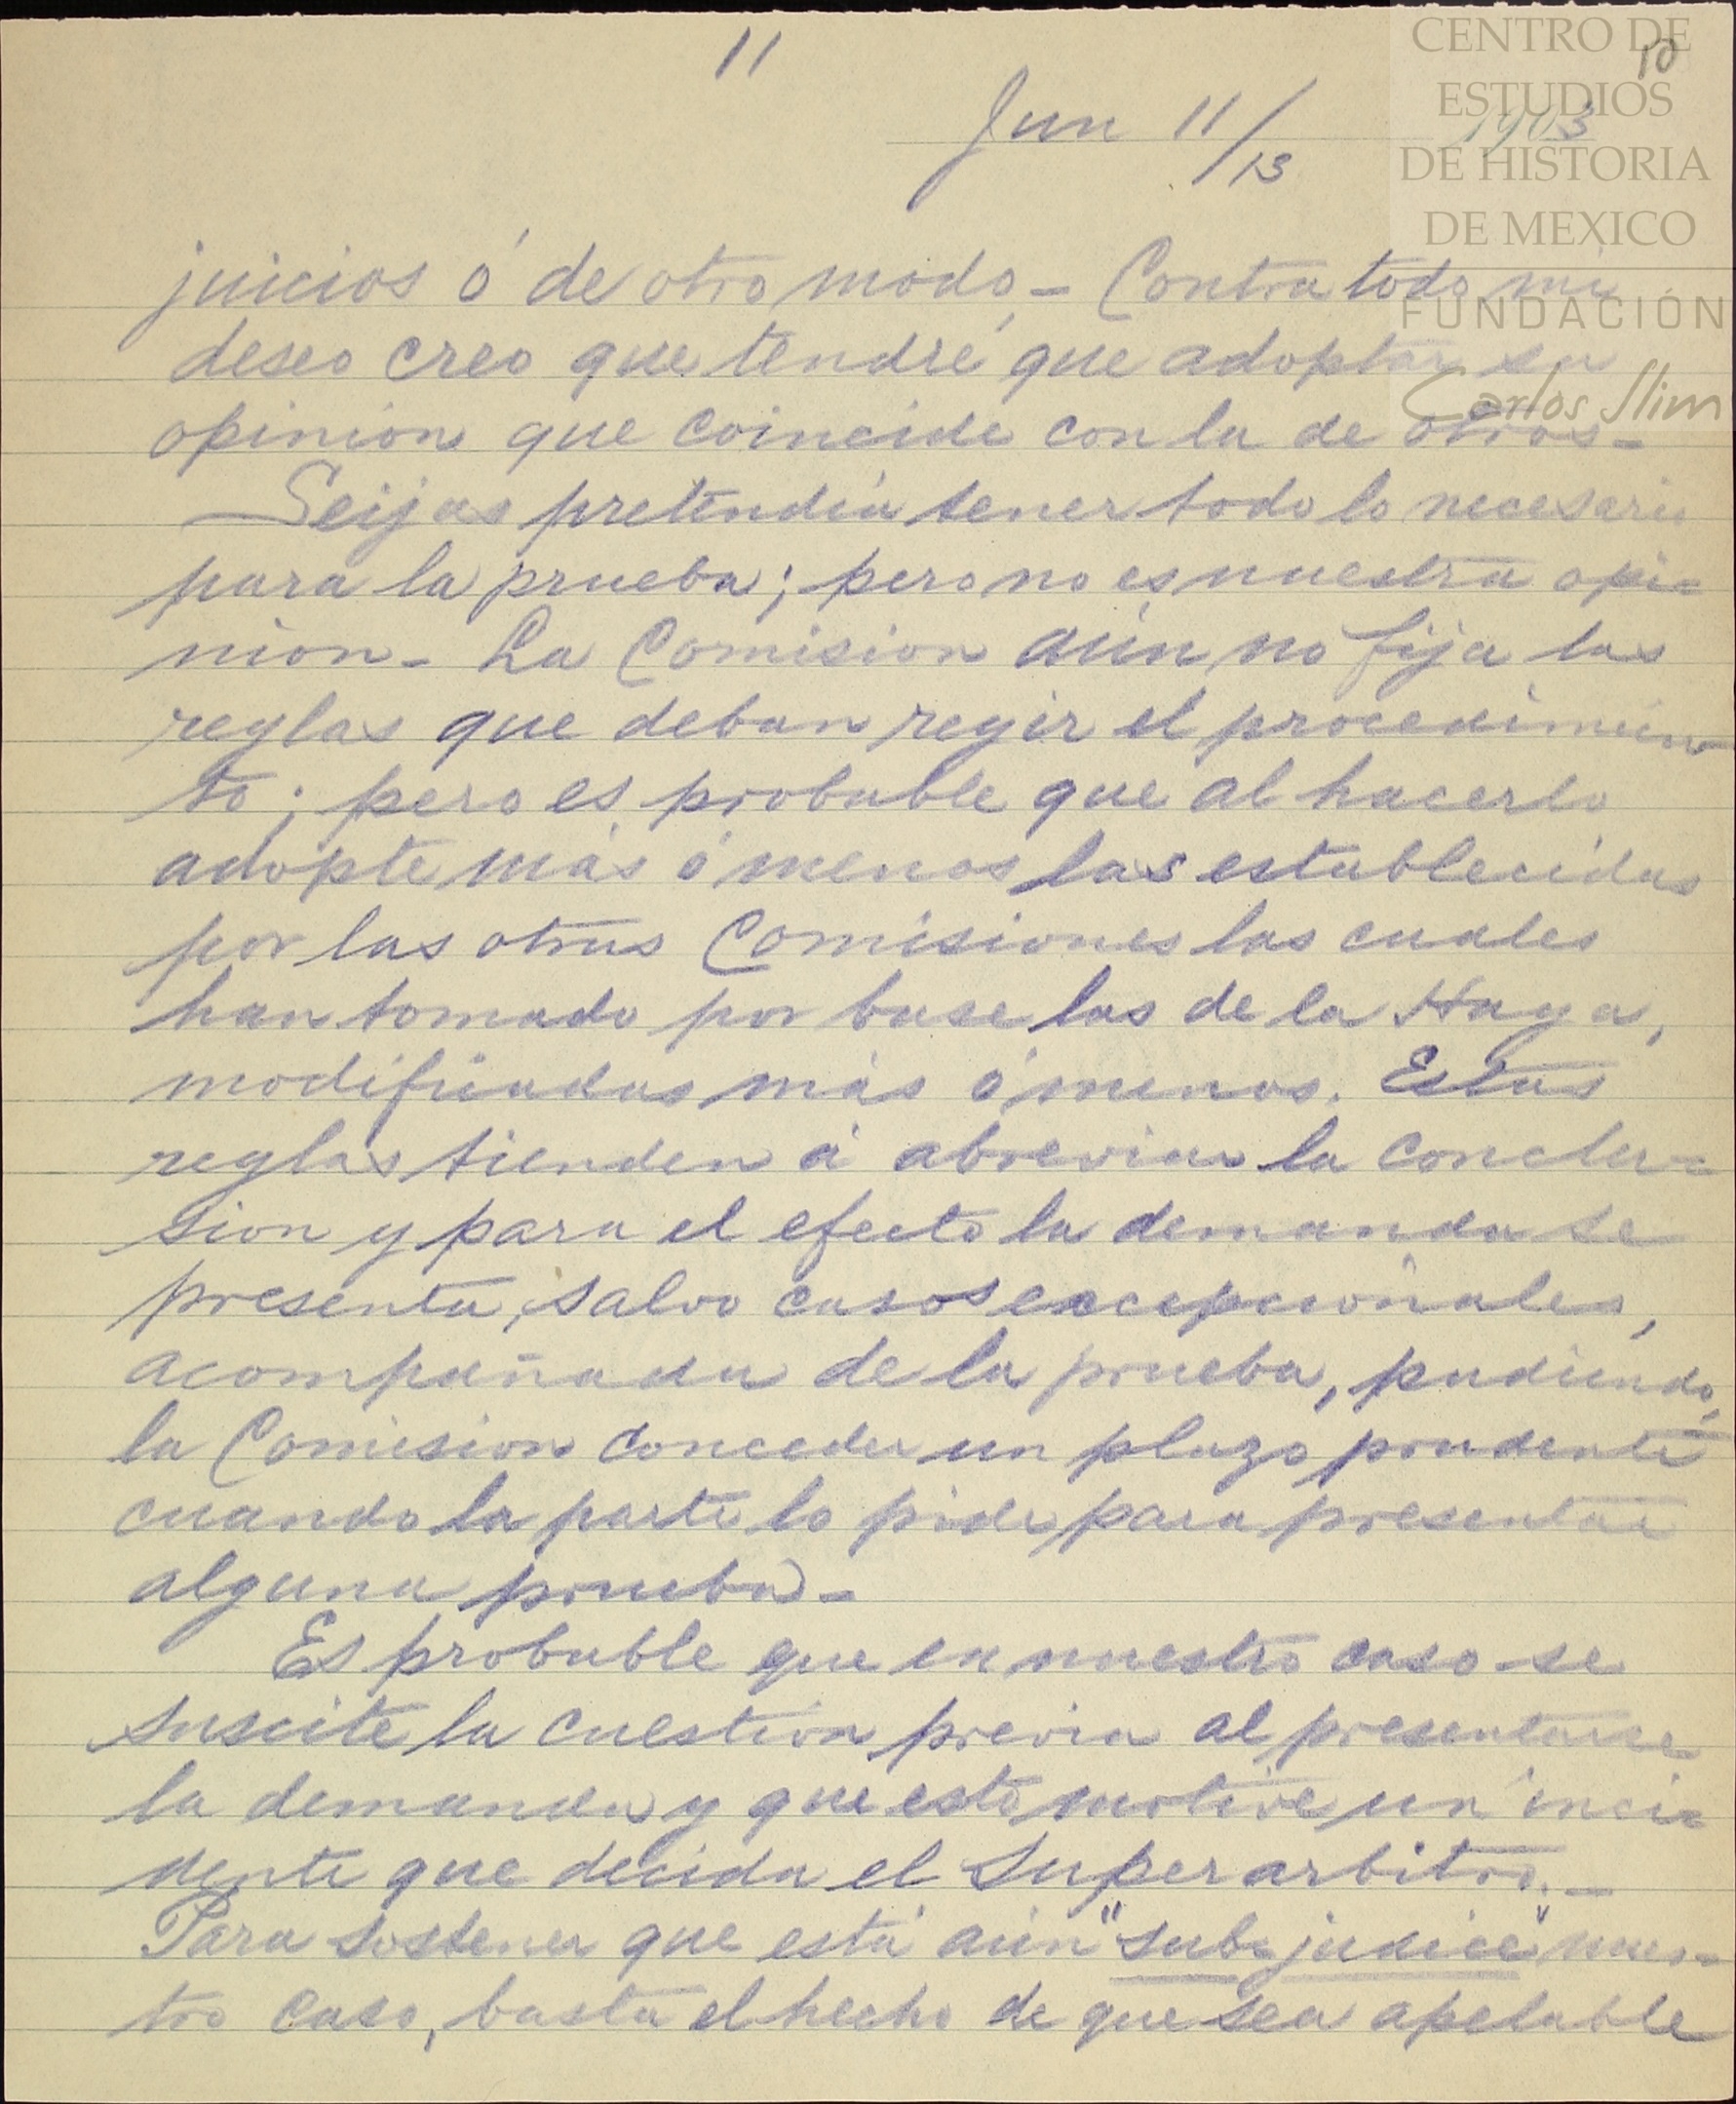 11
10
Jun 11/13 1903
juicios ó de otro modo - Contra todo mi
deseo creo que tendré que adoptar su
opinion que coincide con la de otros -
Seijas pretendía tener todo lo necesario
para la prueba; pero no es nuestra opi=
nion - La Comision aún no fija las
reglas que deban regir el procedimien
to; pero es probable que al hacerlo
adopte más ó menos las establecidas
por las otras Comisiones las cuales
han tomado por base las de la Haya,
modificadas más ó menos. Estas
reglas tienden á abreviar la conclu=
sion y para el efecto la demanda se
presenta, salvo casos excepcionales,
acompañada de la prueba, pudiendo,
la Comision conceder un plazo prudente
cuando la parte lo pide para presentar
alguna prueba -
Es probable que en nuestro caso se
suscite la cuestion previa al presentarse
la demanda y que esto motive un inci=
dente que decida el Superarbitro. -
Para sostener que está aún "sub=judice" nues=
tro caso, basta el hecho de que sea apelable
CENTRO DE
ESTUDIOS
DE HISTORIA
DE MEXICO
FUNDACIÓN
Carlos Slim